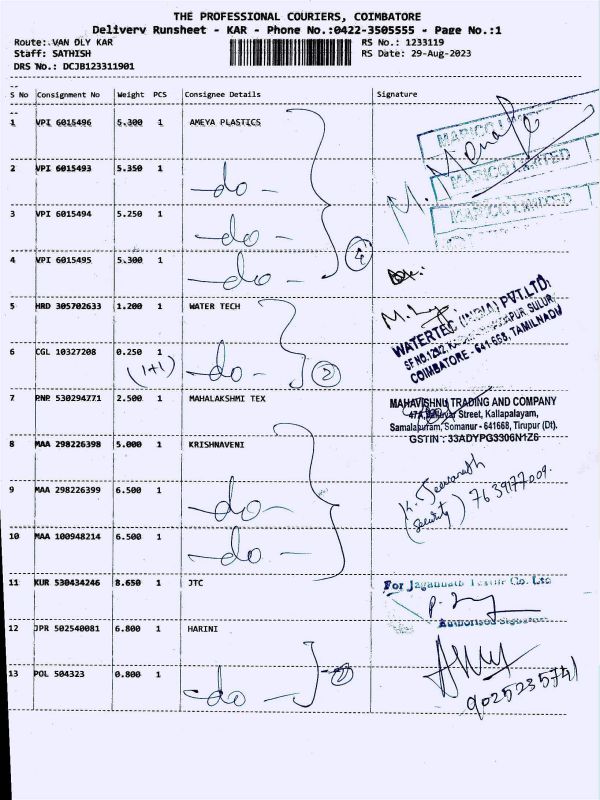 THE PROFESSIONAL COURIERS, COIMBATORE
Delivery Runsheet - KAR - Phone No.:0422-3505555 - Page No.:1
Route: VAN OLY KAR RS No.: 1233119
Staff: SATHISH RS Date: 29-Aug-2023
DRS No.: DCJB123311901
S No Consignment No Weight PCS Consignee Details Signature
1 VPI 6015496 5.300 1 AMEYA PLASTICS
MARICO LIMITED
2 VPI 6015493 5.350 1 -do-
MARICO LIMITED
3 VPI 6015494 5.250 1 -do-
MARICO LIMITED
4 VPI 6015495 5.300 1 -do- 4
5 HRD 305702633 1.200 1 WATER TECH
WATERTEC (INDIA) PVT.LTD.
COIMBATORE - 641-668, TAMILNADU
6 CGL 10327208 0.250 1 -do- 2
(1+1)
7 RNP 530294771 2.500 1 MAHALAKSHMI TEX
MAHAVISHNU TRADING AND COMPANY
Street, Kallapalayam,
Samalapuram, Somanur - 641668, Tirupur (Dt).
GSTIN : 33ADYPG3306N1Z6
8 MAA 298226398 5.000 1 KRISHNAVENI
9 MAA 298226399 6.500 1 -do-
(Security) 7639177009.
10 MAA 100948214 6.500 1 -do-
11 KUR 530434246 8.650 1 JTC
For Jagannath Textile Co. Ltd
Authorised Signatory
12 JPR 502540081 6.800 1 HARINI
13 POL 504323 0.800 1 -do-
9025235741